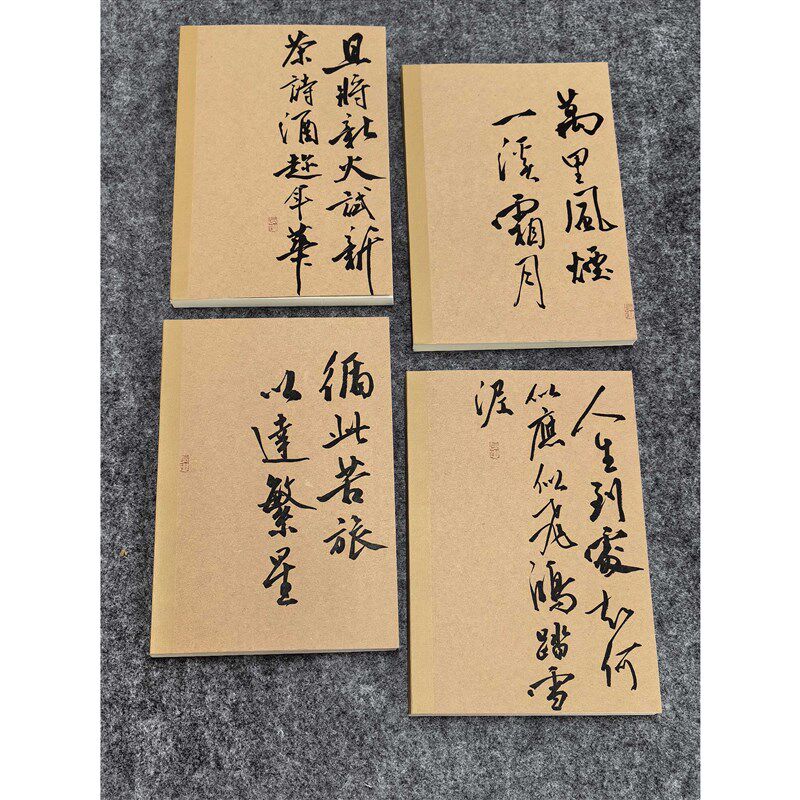 且將新火試新
茶詩酒趁年華
萬里風煙
一溪霜月
循此苦旅
以達繁星
人生到處知何
似應似飛鴻踏雪
泥